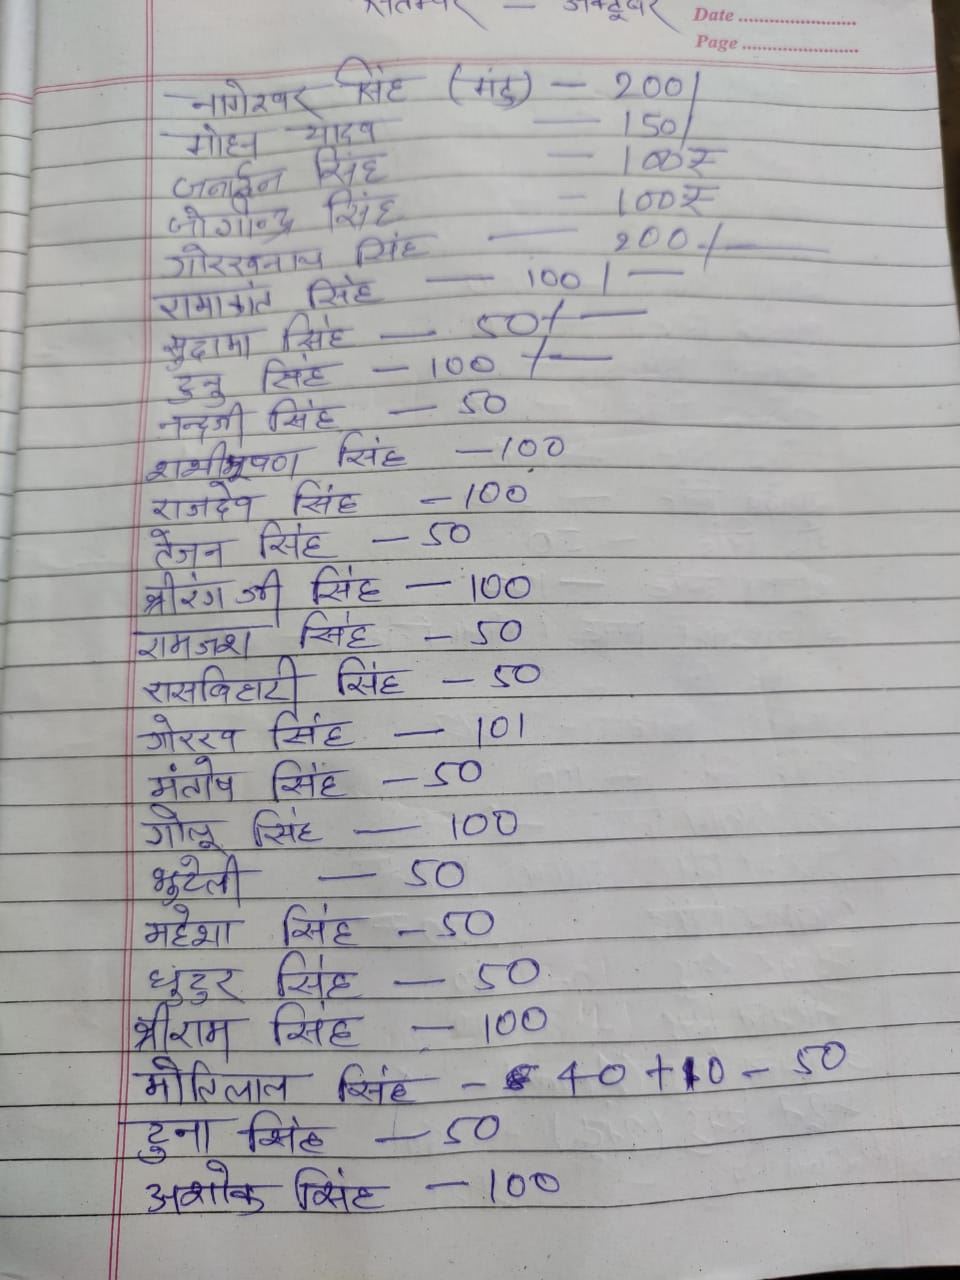 Date
Page
सिंह (संडु) – 200/
मोहन यादव — 150/
जनार्दन सिंह — 100रू
सिंह – 100रू
गोरखनाथ सिंह — 200/—
सिंह — 100/—
सुदामा सिंह — 50/—
इन्दु सिंह – 100/—
नन्दजी सिंह — 50
शशीभूषण सिंह – 100
राजदेव सिंह – 100
तेजन सिंह – 50
श्रीरंग जी सिंह – 100
रामजश सिंह – 50
रासबिहारी सिंह – 50
गोरख सिंह – 101
मैनेजर सिंह – 50
गोलू सिंह – 100
भुटेली — 50
महेश सिंह – 50
धुंदुर सिंह – 50
श्रीराम सिंह – 100
मोतिलाल सिंह – 40 + 10 – 50
टुना सिंह – 50
अशोक सिंह – 100